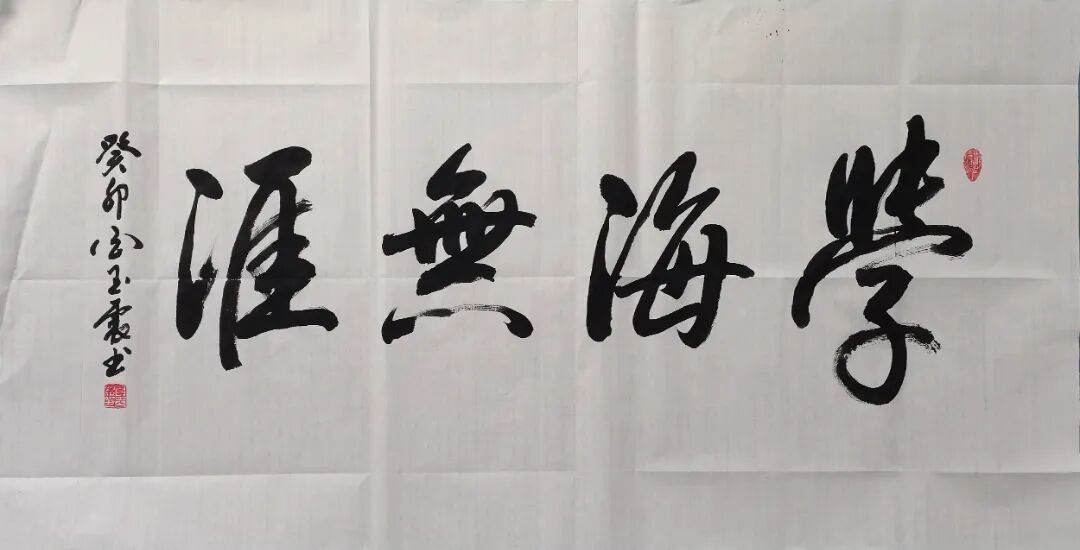 學海無涯
癸卯 玉震书